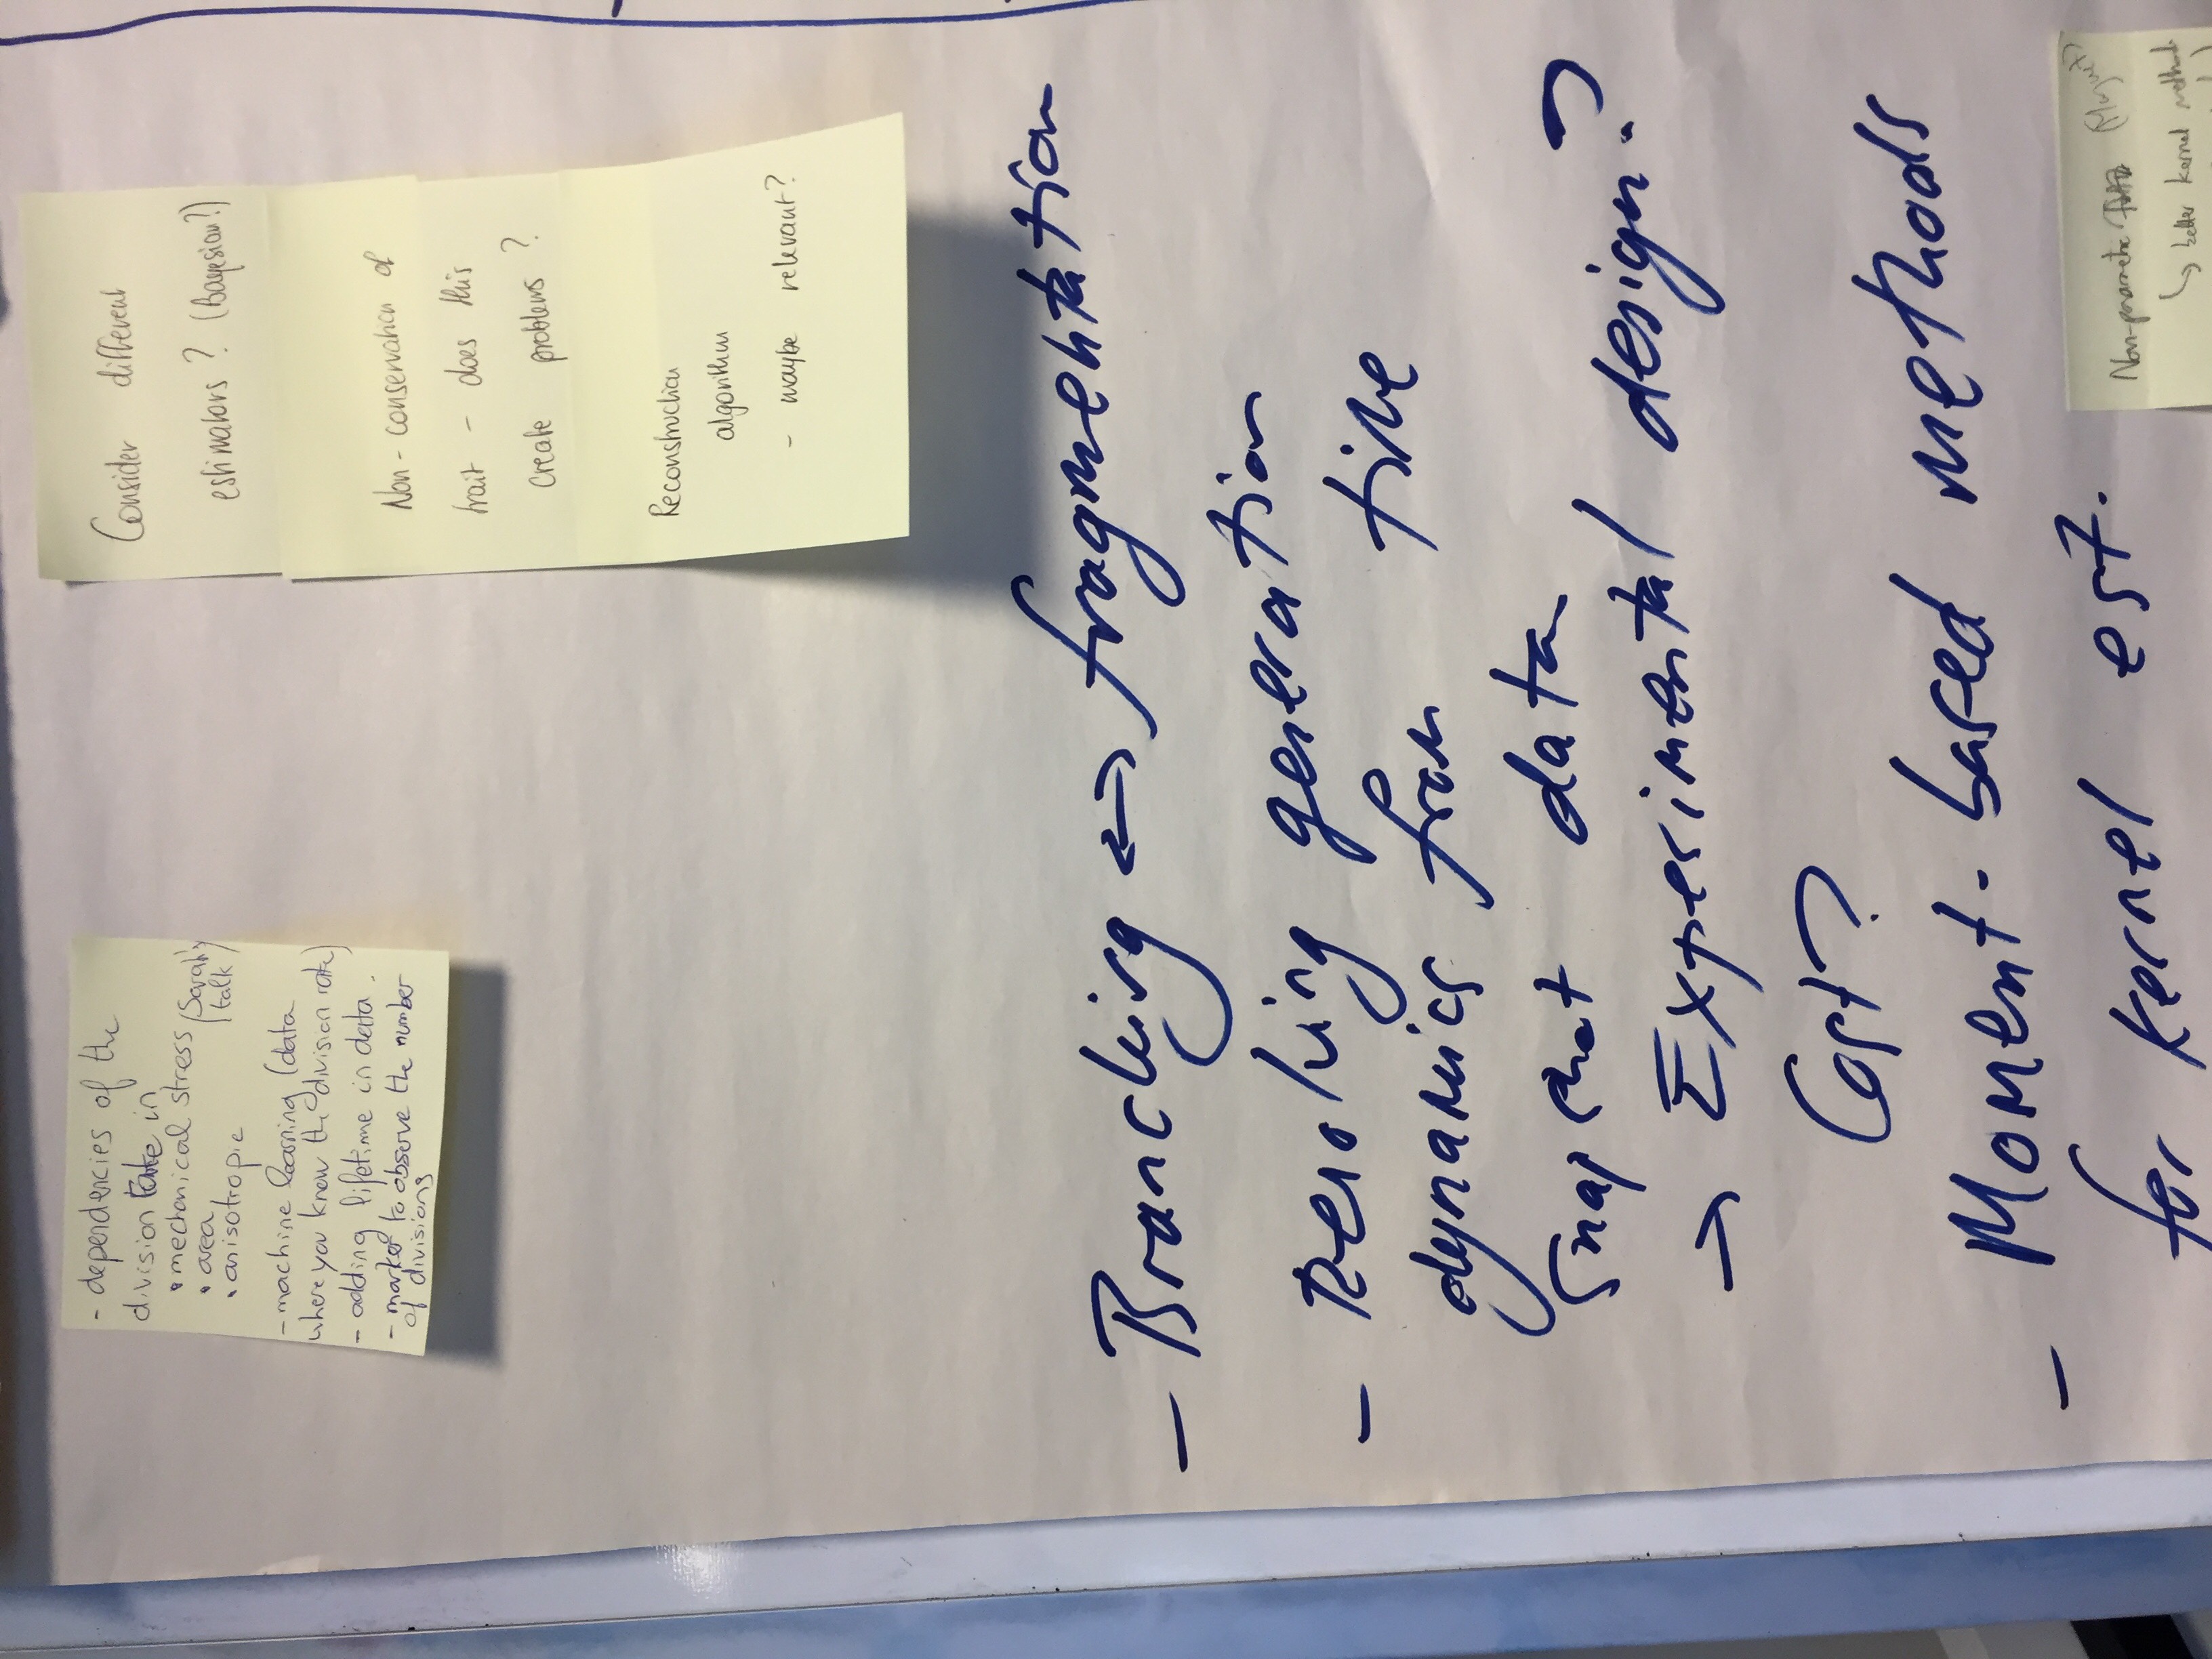 - dependencies of the
division rate in
• mechanical stress (Sarah's
talk)
• area
• anisotropie
- machine learning (data
where you know the division rate)
- adding lifetime in data.
- marker to observe the number
of divisions
Consider different
estimators? (Bayesian?)
Non-conservation of
trait - does this
create problems?
Reconstruction
algorithm
- maybe relevant?
- Branching <-> fragmentation
- Resolving generation
dynamics from time
snapshot data
-> Experimental design?
Cost?
- Moment-based methods
for kernel est.
Non-parametric
↳ better kernel methods